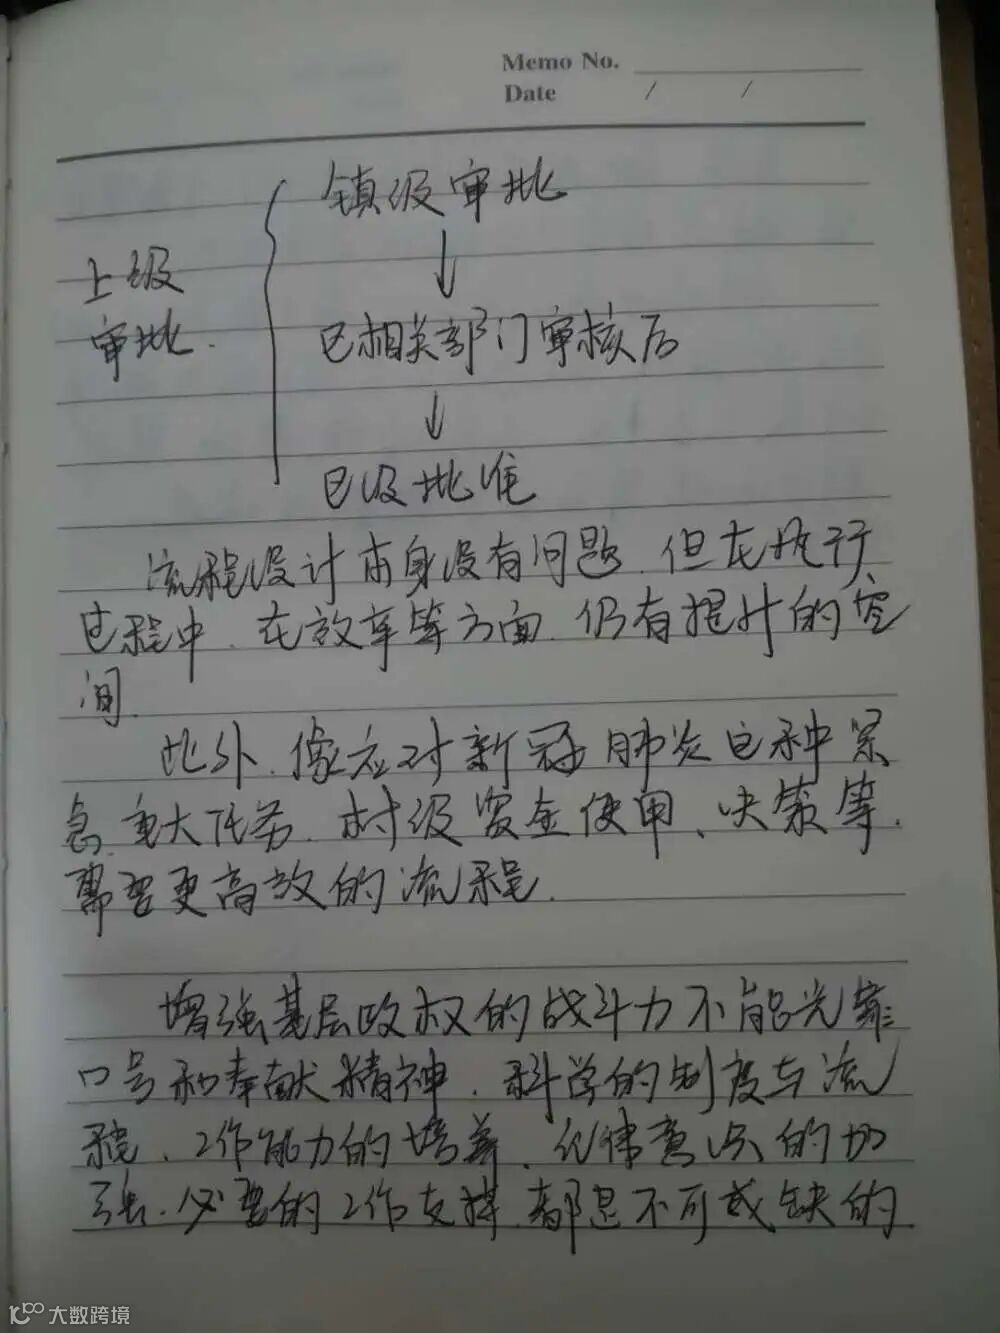 Memo No.
Date / /
镇级审批
↓
上级
审批.
区相关部门审核后
↓
区级批准
流程设计本身没有问题.但在执行
过程中.在效率等方面.仍有提升的空
间.
此外.像应对新冠肺炎这种紧
急.重大任务.村级资金使用、决策等.
需要更高效的流程.
增强基层政权的战斗力不能光靠
口号和奉献精神.科学的制度与流
程、工作能力的培养、纪律意识的加
强.必要的工作支撑.都是不可或缺的.
大数跨境